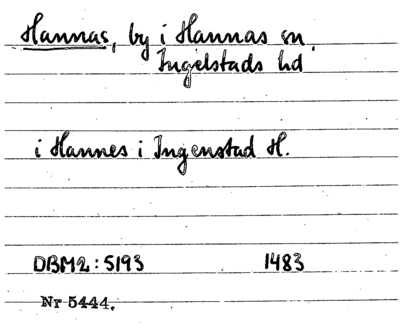 Hannas, by i Hannas sn,
Ingelstads hd
i Hannes i Ingenstad H.
DBM2:5193 1483
Nr 5444.